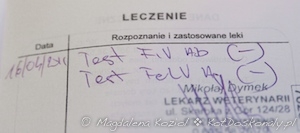 LECZENIE
Data
Rozpoznanie i zastosowane leki
Test FIV AB (-)
Test FeLV Ag (-)
Mikołaj Dymek
LEKARZ WETERYNARII
124/28
© Magdalena Kozieł KotDoskonały.pl